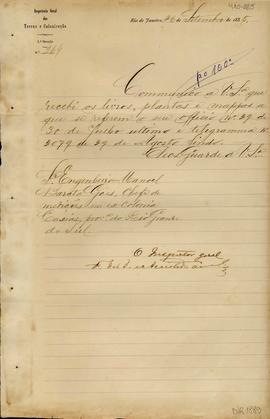 Inspectoria Geral
das
Terras e Colonisação
Rio de Janeiro, 26 de Setembro de 1885.
Nº 769
pº 100
Communico a V. Sª que
recebi os livros, plantas e mappas a
que se referem o seu officio Nº 29 de
30 de Julho ultimo e telegramma Nº
2079 de 29 de Agosto findo.
Deos Guarde a V. Sª
Sr Engenheiro Manoel
Barata Goes, Chefe de
medições na ex Colonia
Caxias, provª do Rio Grande
do Sul.
O Inspector geral